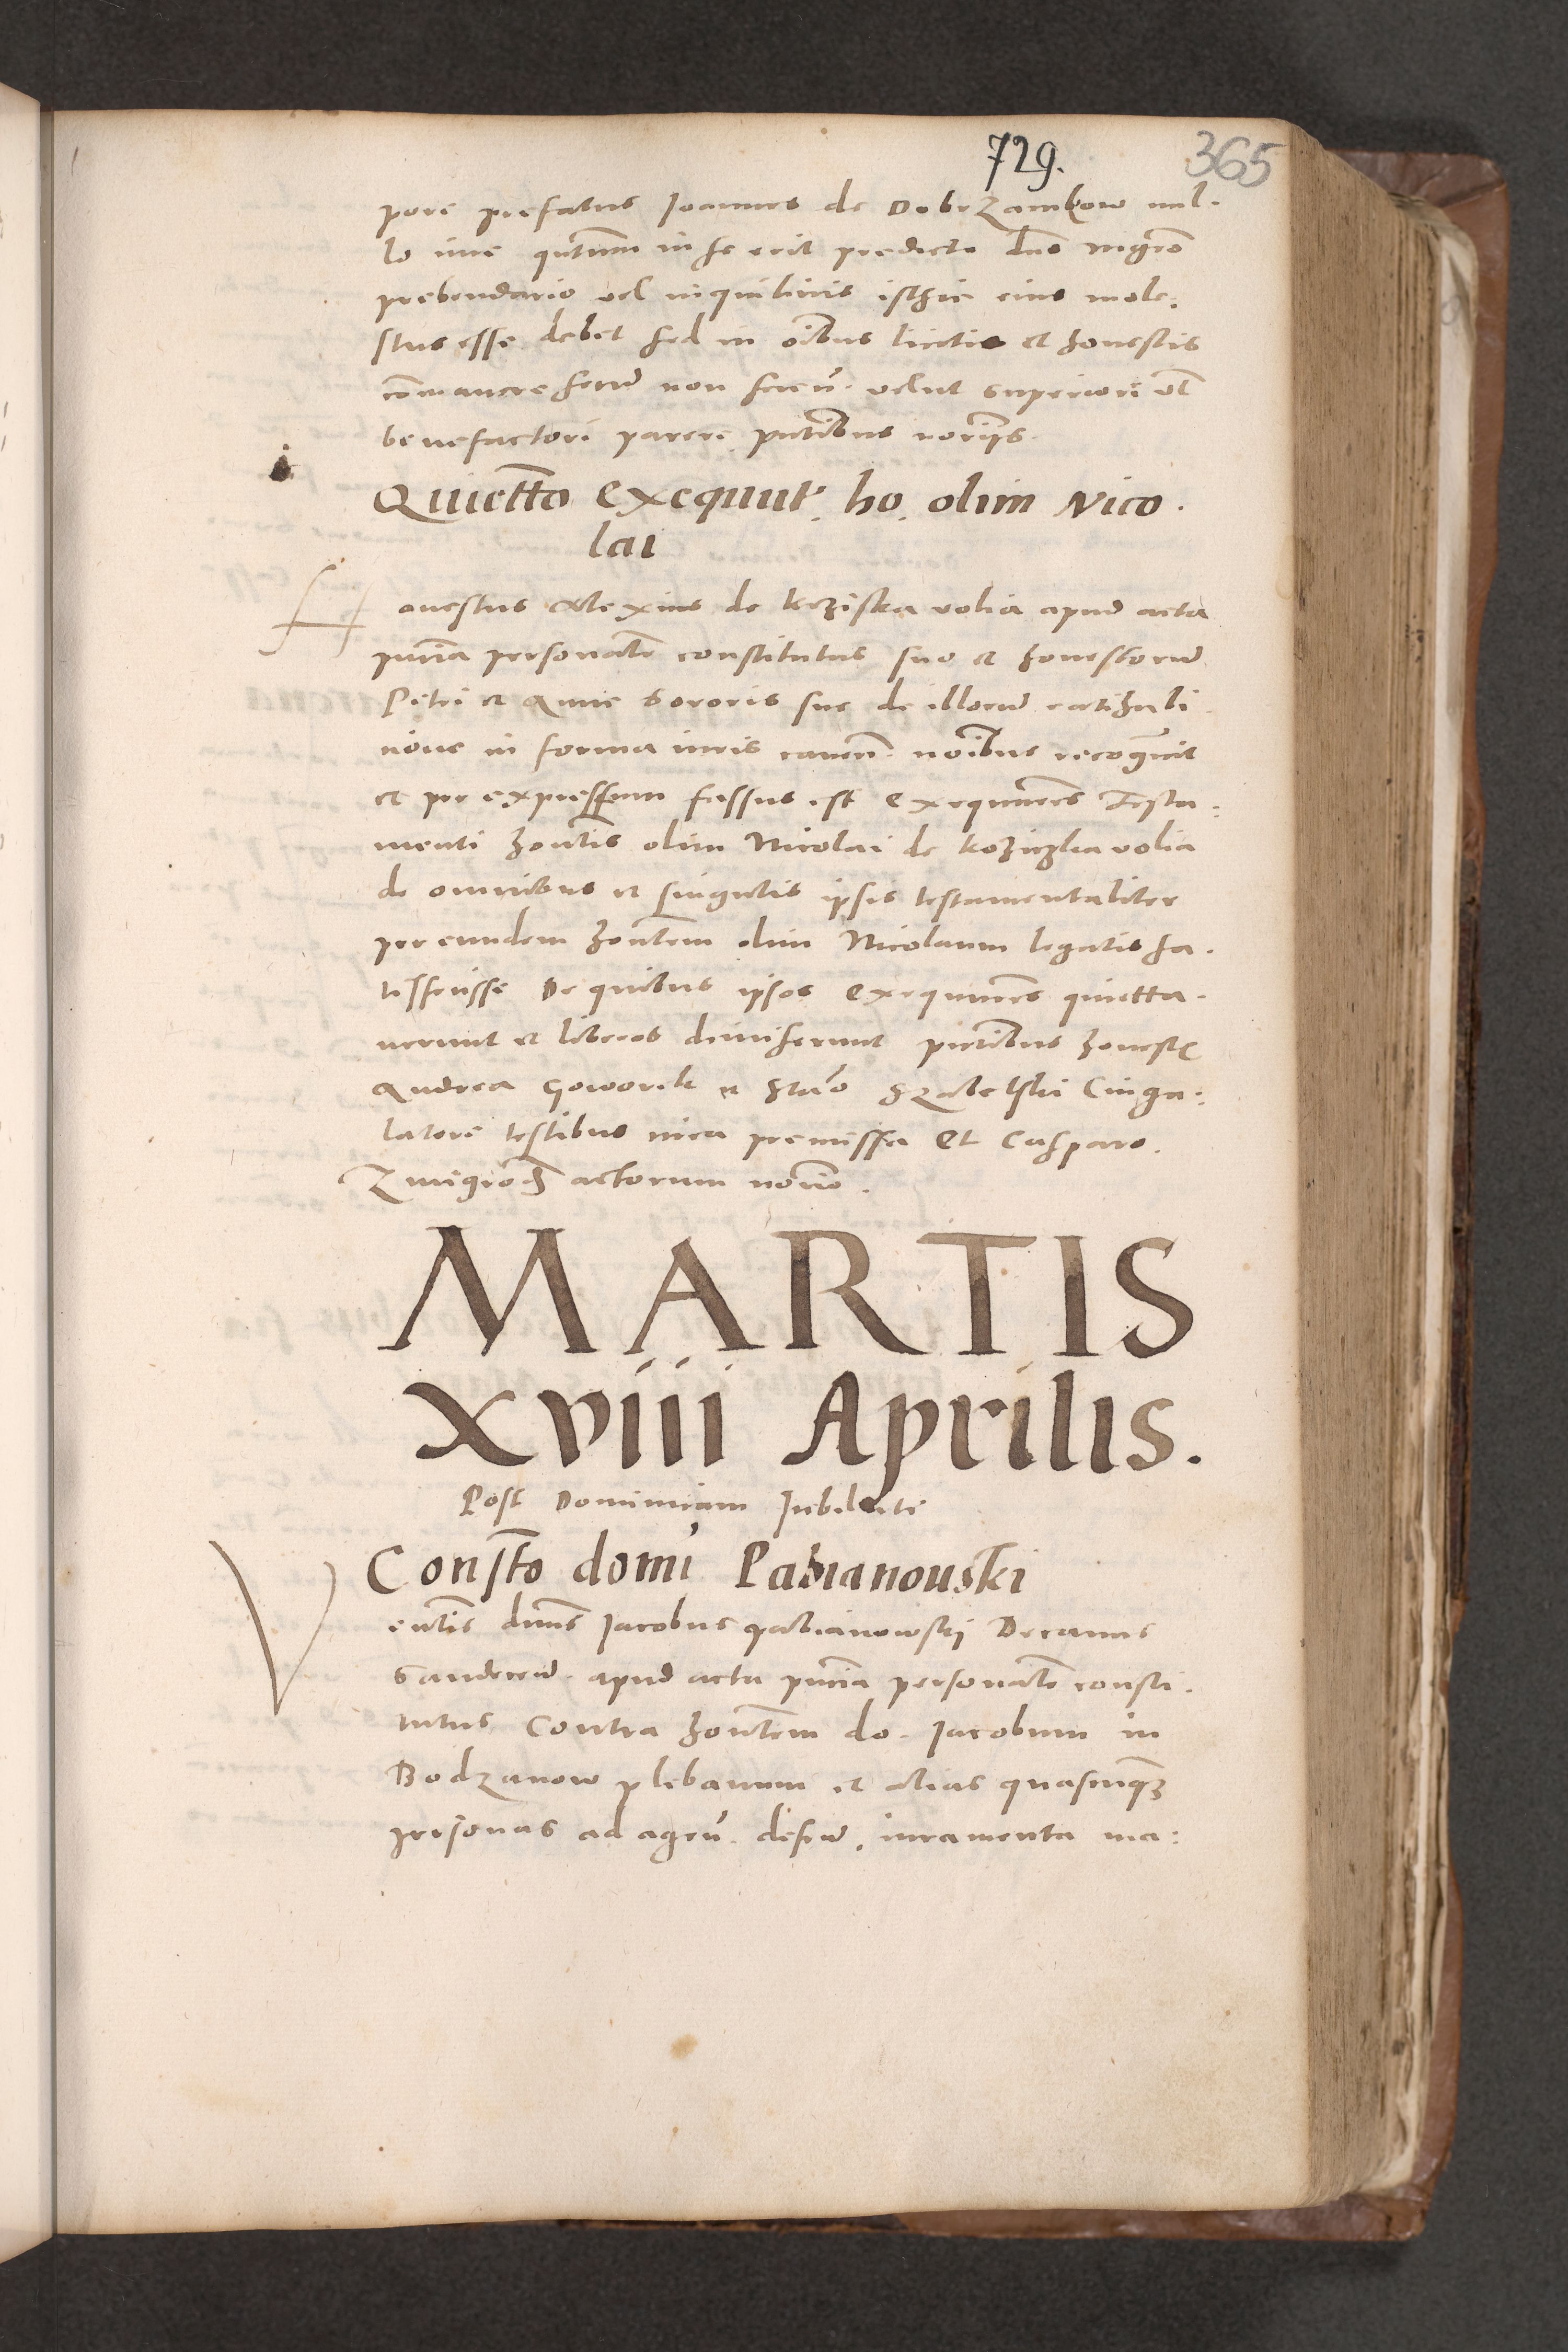 729.
365
pore prefatus Ioannes de Dobrzankow nul-
lo iure qntum in se erit predicto dno mgro
prebendario vel inquilinis isthic eius mole:
stus esse debet sed in oibus licitis et honestis
comanere secum non secus velut superiori vel
benefactori parere pntibus noriis.
Quietto exequut. ho. olim Nico.
lai
Honestus Alexius de koziska volia apud acta
pncia personalr constitutus suo et honestorum
Petri et Anne sororis sue de illorum ratihabi
none in forma iuris caven. noibus recognovit
et per expressum fassus est exequutores Testa:
menti honti olim Nicolai de koziczka volia
de omnibus et singulis ipsis testamentaliter
per eundem hontem olim Nicolaum legatis sa.
tisfecisse De quibus ipsos exequutores quietta.
verunt et liberos dimiserunt pntibus honestis
Andrea Goworek et Stano Szabelski Cinga:
latore testibus circa premissa Et Casparo.
Zmigrod actorum notario.
MARTIS
xviii Aprilis.
Post Dominicam Iubilate
Constto domi Pabianouski
Venlis dnus Iacobus pabianowskj Decanus
Sandecen. apud acta pncia personalr consti.
tutus Contra hontem do. Iacobum in
Bodzanow plebanum et alias quascumqz
personas ad agen. defen. iuramenta ma: